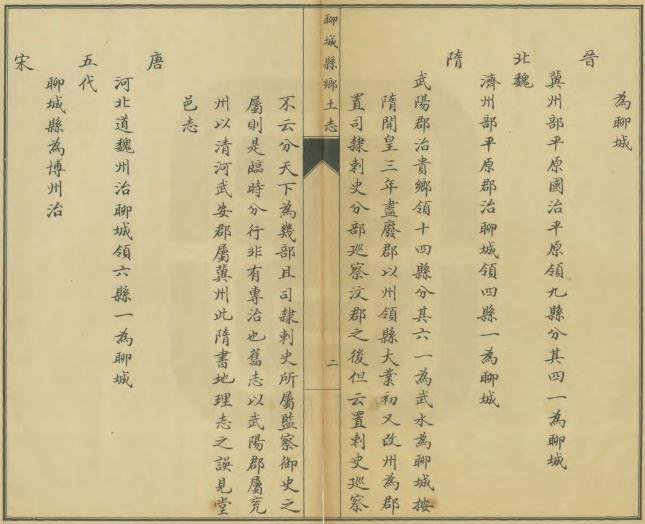 為聊城
晉
冀州部平原國治平原領九縣分其四一為聊城
北魏
濟州部平原郡治聊城領四縣一為聊城
隋
武陽郡治貴鄉領十四縣分其六一為武水為聊城按
隋開皇三年盡廢郡以州領縣大業初又改州為郡
置司隸刺史分部巡察汶郡之後但云置刺史巡察
聊城縣鄉土志
二
不云分天下為幾部且司隸刺史所屬監察御史之
屬則是臨時分行非有專治也舊志以武陽郡屬兖
州以清河武安郡屬冀州此隋書地理志之誤見堂
邑志
唐
河北道魏州治聊城領六縣一為聊城
五代
聊城縣為博州治
宋